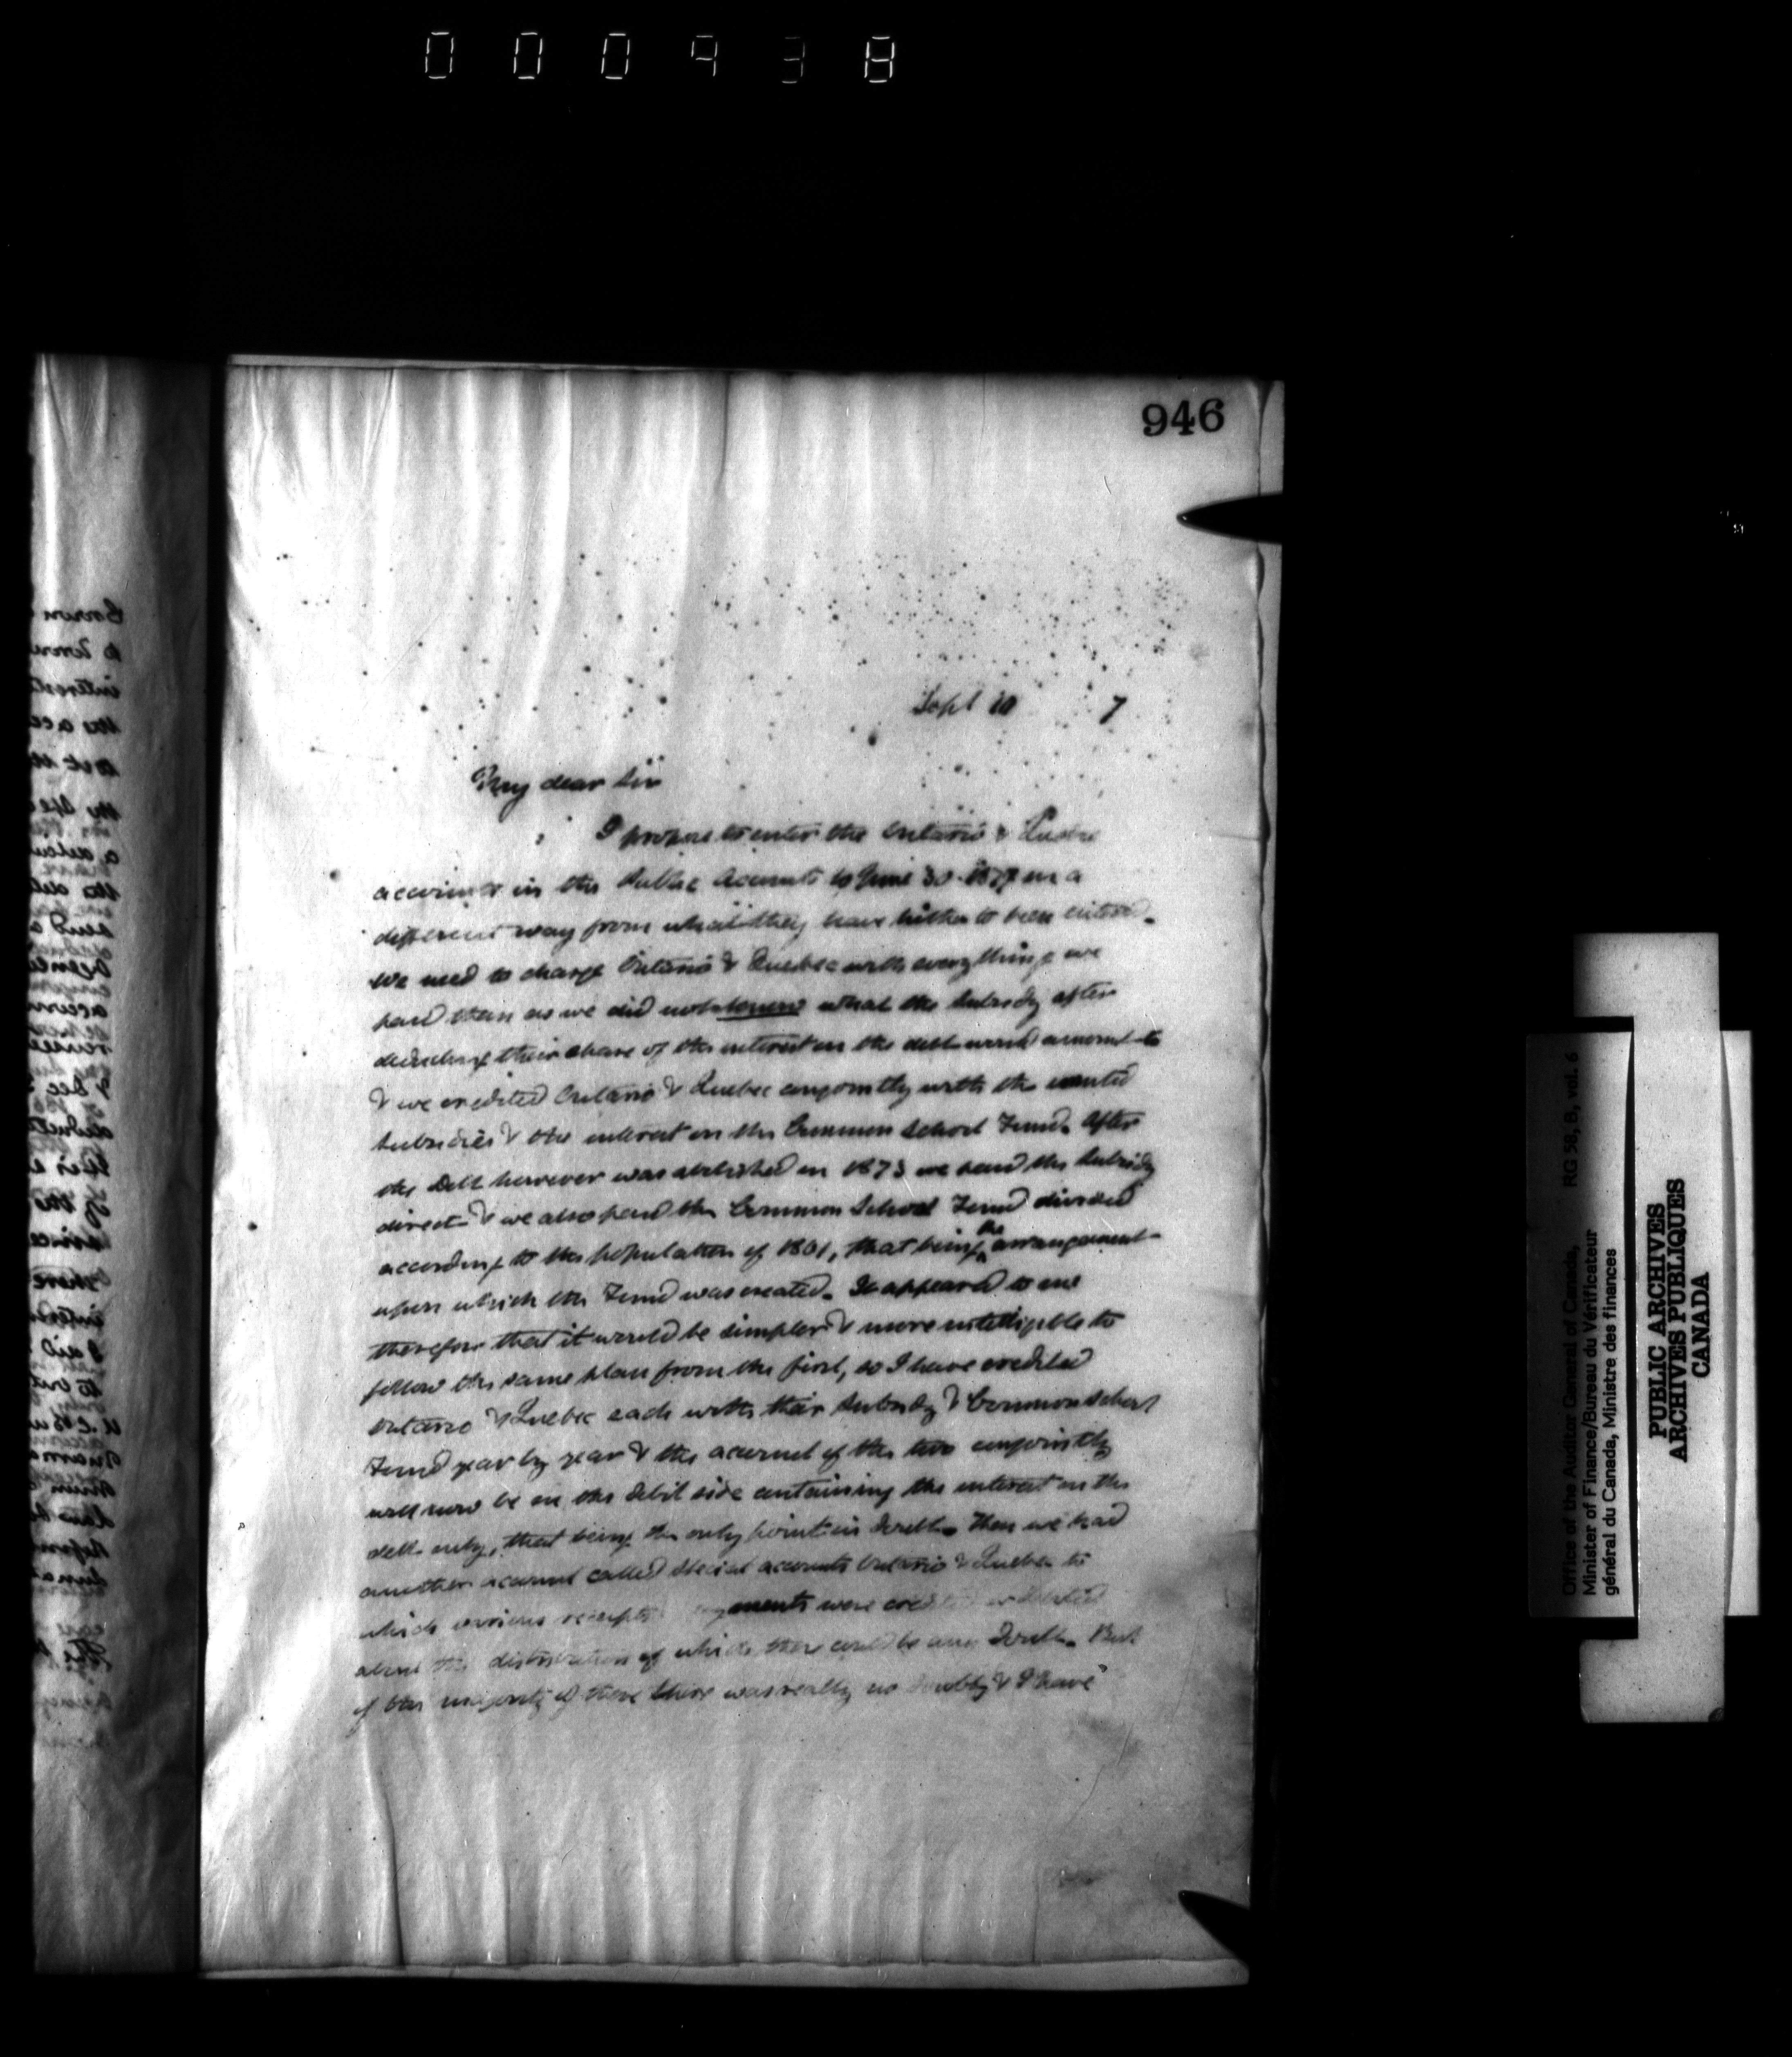 000938
946
Sept 10 7
My dear Sir
I propose to enter the Ontario & Quebec
accounts in the Public Accounts to June 30 1877 in a
different way from what they have hitherto been entered.
We used to charge Ontario & Quebec with everything we
paid them as we did not know what the Subsidy after
deducting their share of the interest on the debt would amount to
& we credited Ontario & Quebec conjointly with the united
Subsidies & the interest on the Common School Fund. After
the Debt however was abolished in 1873 we paid the Subsidy
direct & we also paid the Common School Fund divided
according to the population of 1861, that being the arrangement
upon which the Fund was created. It appeared to me
therefore that it would be simpler & more intelligible to
follow the same plan from the first, so I have credited
Ontario & Quebec each with their Subsidy & Common School
Fund year by year & the account of the two conjointly
will now be on the debit side containing the interest on the
debt only, that being the only point in doubt. Then we had
another account called Special accounts Ontario & Quebec to
which various receipts payments were credited or debited
about the distribution of which there could be any doubt. But
of the majority of these there was really no doubt, & I have
Office of the Auditor General of Canada, RG 58, B, vol. 6
Minister of Finance/Bureau du Vérificateur
général du Canada, Ministre des finances
PUBLIC ARCHIVES
ARCHIVES PUBLIQUES
CANADA